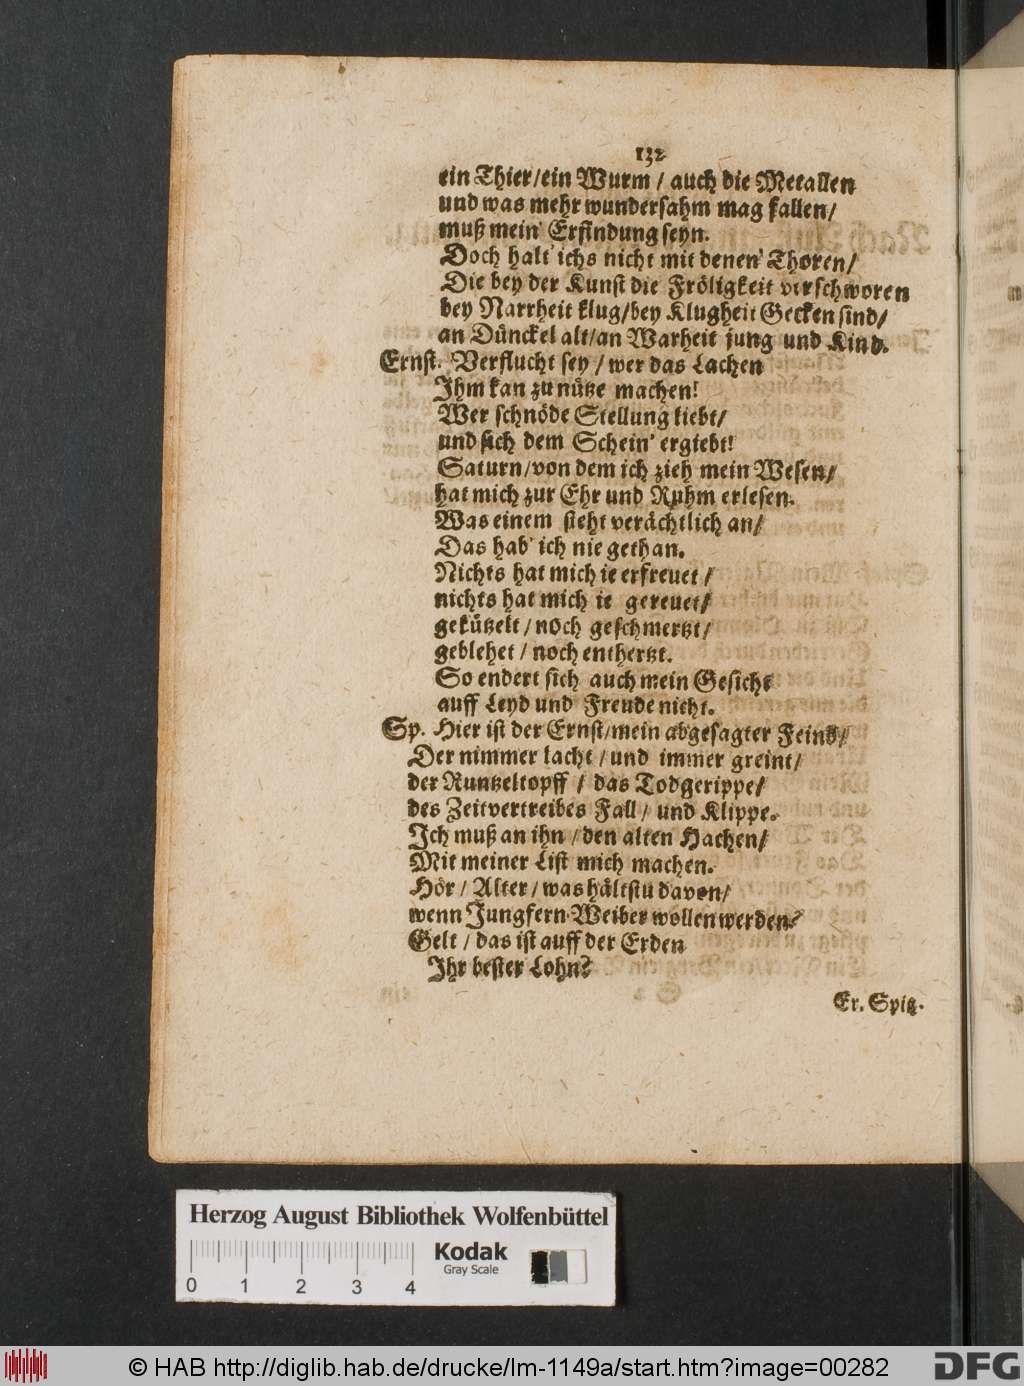 132
ein Thier/ein Wurm / auch die Metallen
und was mehr wundersahm mag fallen/
muß mein' Erfindung seyn.
Doch halt' ichs nicht mit denen' Thoren/
Die bey der Kunst die Fröligkeit verschworen
bey Narrheit klug/bey Klugheit Gecken sind/
an Dünckel alt/an Warheit jung und Kind.
Ernst. Verflucht sey / wer das Lachen
Ihm kan zu nütze machen!
Wer schnöde Stellung liebt/
und sich dem Schein' ergiebt!
Saturn/von dem ich zieh mein Wesen/
hat mich zur Ehr und Ruhm erlesen.
Was einem steht verächtlich an/
Das hab' ich nie gethan.
Nichts hat mich ie erfreuet /
nichts hat mich ie gereuet/
gekützelt / noch geschmertzt/
geblehet / noch enthertzt.
So endert sich auch mein Gesicht
auff Leyd und Freude nicht.
Sp. Hier ist der Ernst/mein abgesagter Feind/
Der nimmer lacht / und immer greint/
der Runtzeltopff / das Todgerippe/
des Zeitvertreibes Fall / und Klippe.
Ich muß an ihn / den alten Hachen/
Mit meiner List mich machen.
Hör / Alter / was hältstu davon/
wenn Jungfern Weiber wollen werden?
Gelt / das ist auff der Erden
Ihr bester Lohn?
Er. Spitz.
Herzog August Bibliothek Wolfenbüttel
Kodak
Gray Scale
0 1 2 3 4
© HAB http://diglib.hab.de/drucke/lm-1149a/start.htm?image=00282
DFG